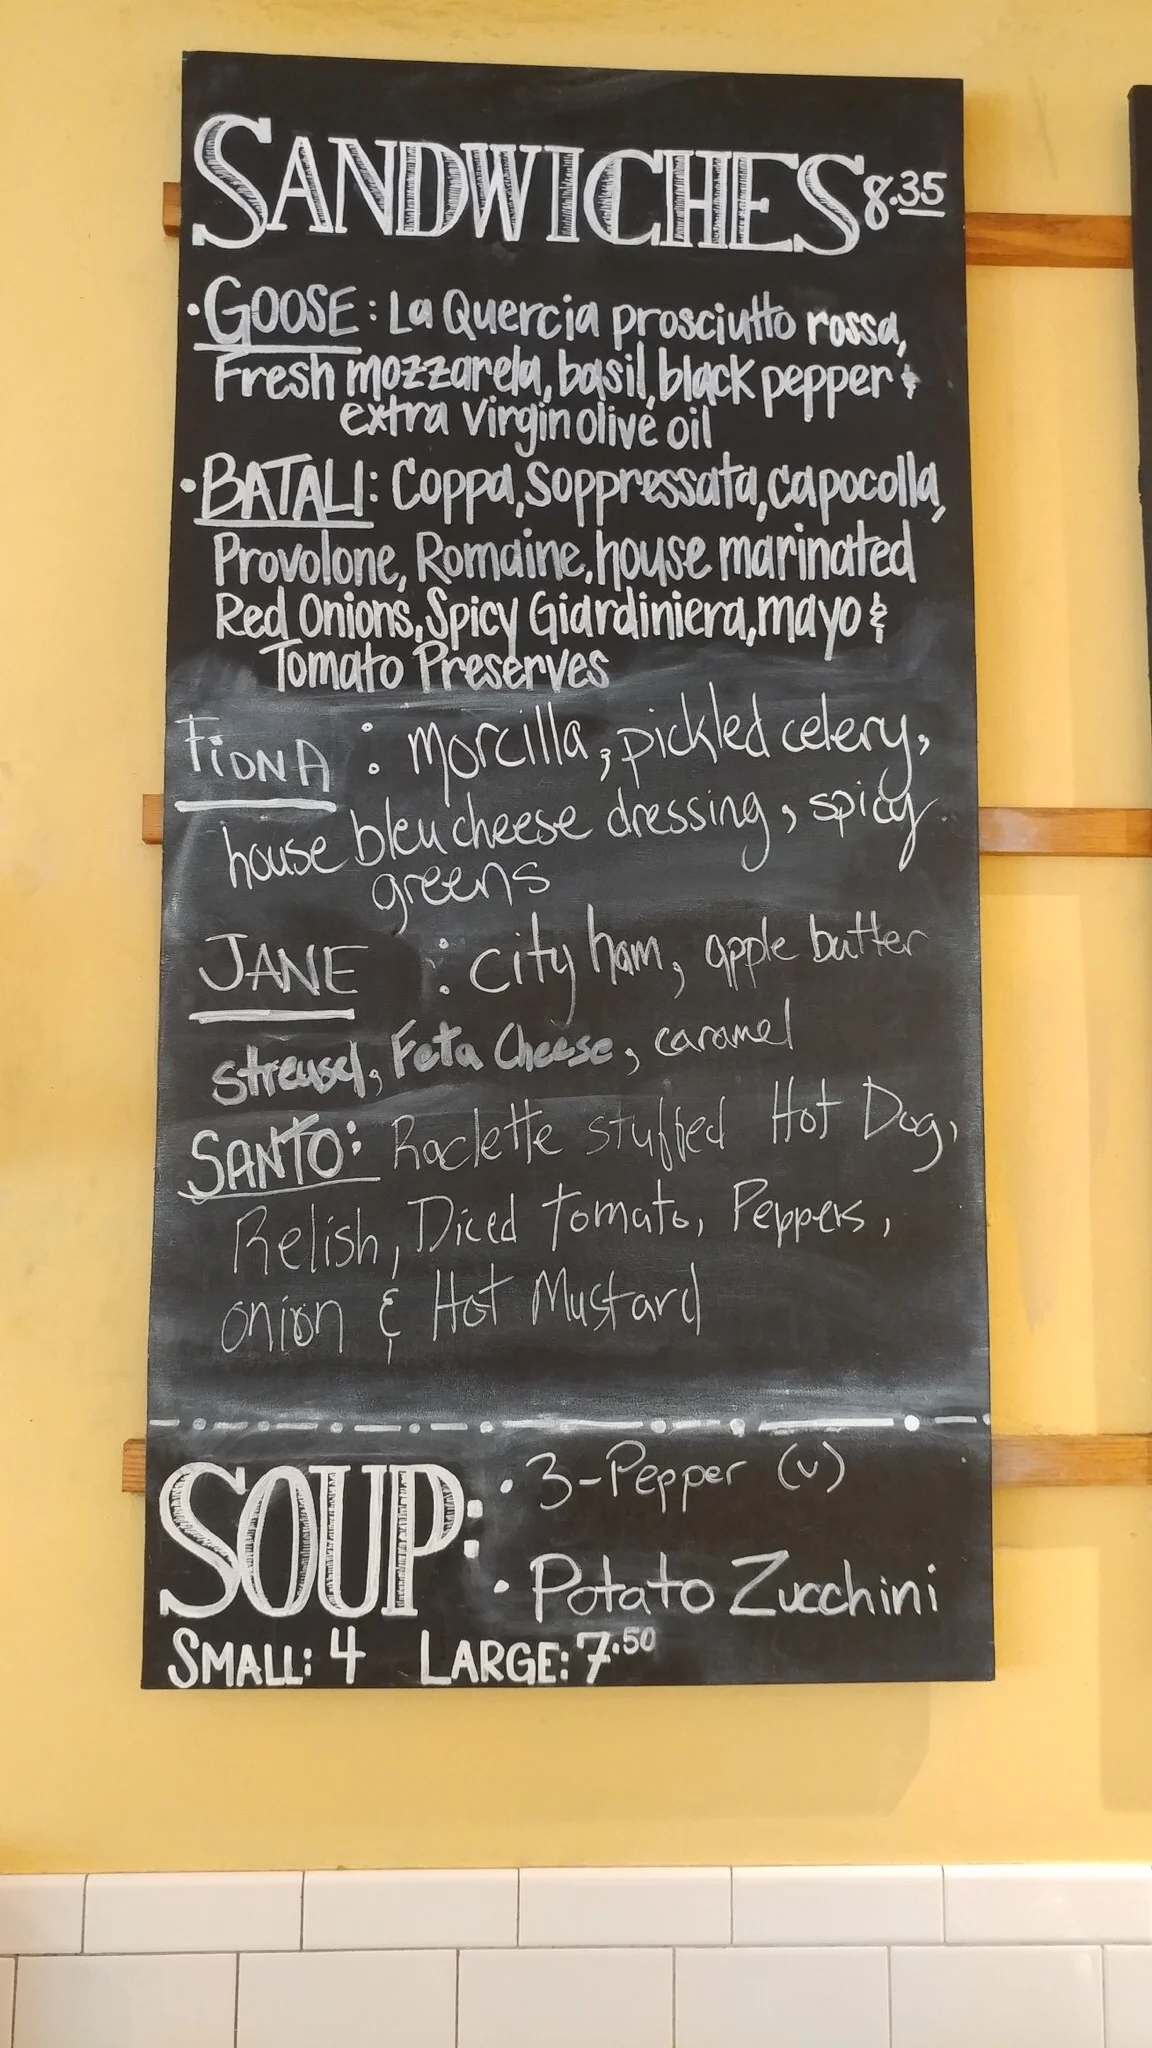 SANDWICHES 8.35
• GOOSE: La Quercia prosciutto rossa,
Fresh mozzarela, basil, black pepper &
extra virgin olive oil
• BATALI: Coppa, Soppressata, capocolla,
Provolone, Romaine, house marinated
Red Onions, Spicy Giardiniera, mayo &
Tomato Preserves
FIONA : morcilla, pickled celery,
house bleu cheese dressing, spicy
greens
JANE : city ham, apple butter
streusel, Feta Cheese, caramel
SANTO: Raclette stuffed Hot Dog,
Relish, Diced tomato, Peppers,
onion & Hot Mustard
SOUP: • 3-Pepper (v)
• Potato Zucchini
SMALL: 4 LARGE: 7.50